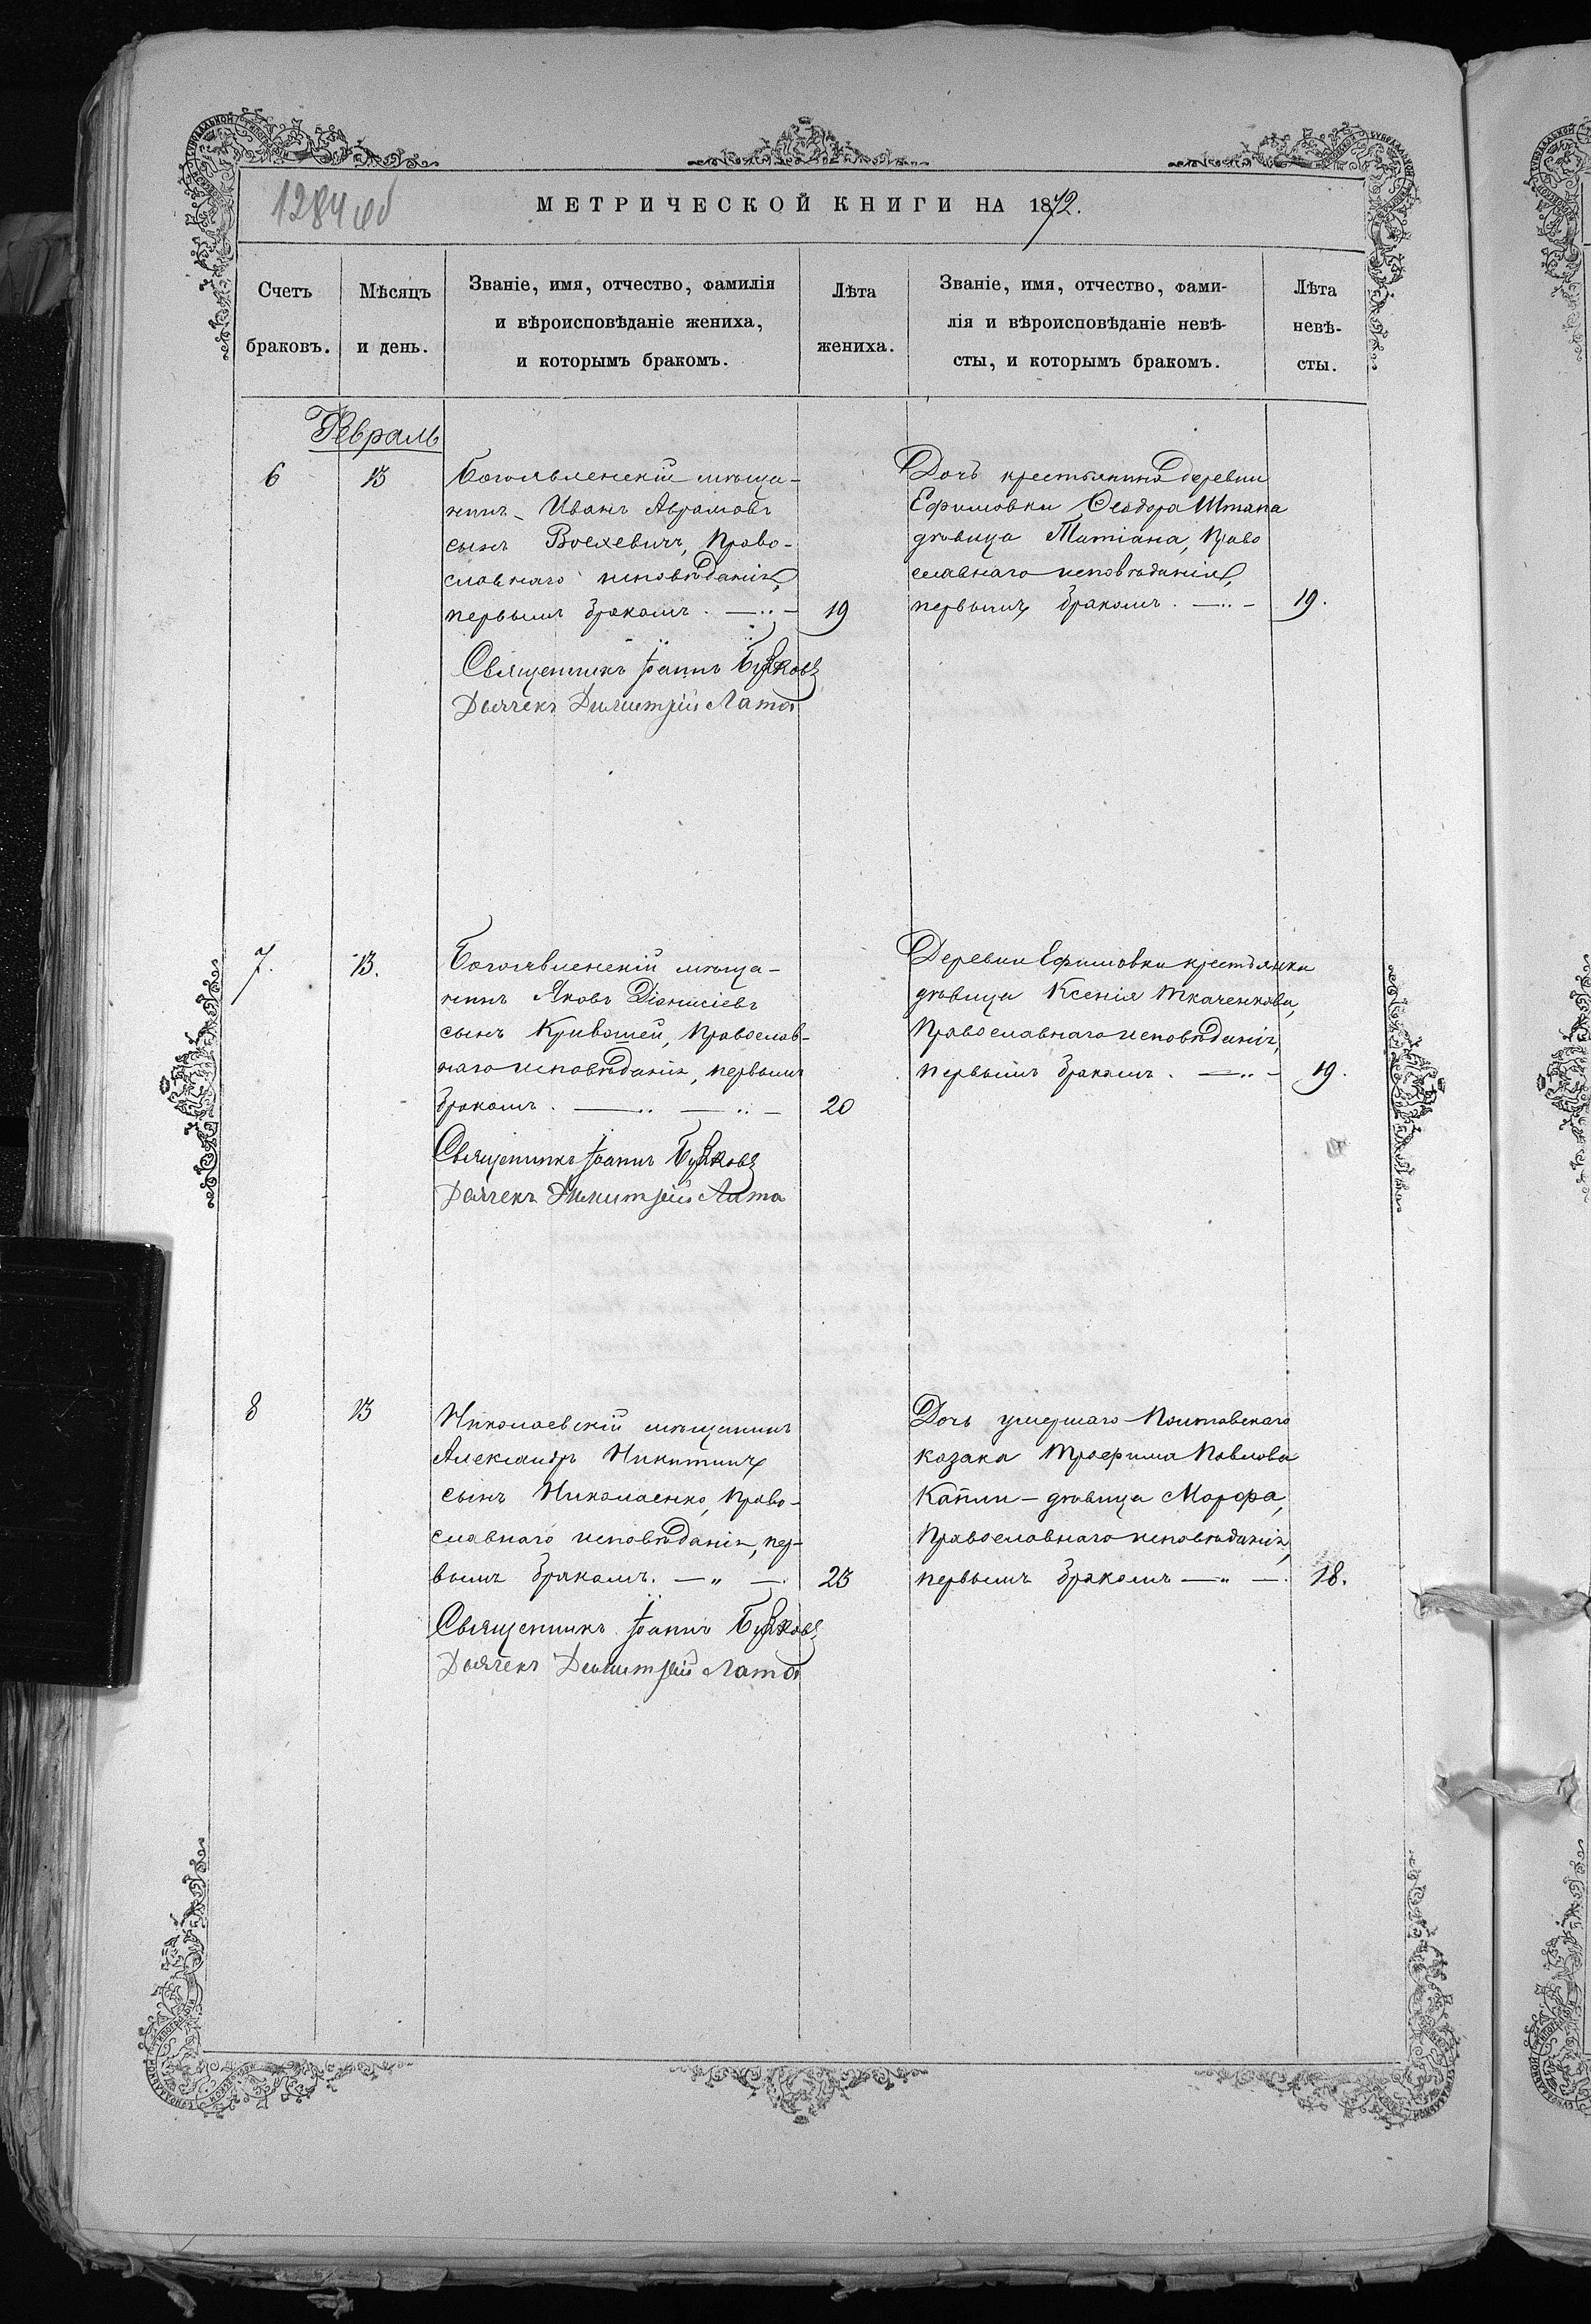 1284 об
МЕТРИЧЕСКОЙ КНИГИ НА 1872.
Счетъ браковъ.
Мѣсяцъ и день.
Званіе, имя, отчество, фамилія
и вѣроисповѣданіе жениха,
и которымъ бракомъ.
Лѣта жениха.
Званіе, имя, отчество, фами-
лія и вѣроисповѣданіе невѣ-
сты, и которымъ бракомъ.
Лѣта невѣ-
сты.
Февраль
6
13
Богоявленскій мѣща-
нинъ Иванъ Аврамовъ
сынъ Воехевичъ, Право-
славнаго исповѣданія,
первымъ бракомъ.
19
Священникъ Іоаннъ
Дьячекъ Димитрій Лата
Дочь крестьянина деревни
Ефимовки Ѳеодора Штапа
дѣвица Татіана, Право
славнаго исповѣданія,
первымъ бракомъ.
19.
7.
13.
Богоявленскій мѣща-
нинъ Яковъ Діонисіевъ
сынъ Кривошей, Православ-
наго исповѣданія, первымъ
бракомъ.
20
Священникъ Іоаннъ
Дьячекъ Димитрій Лата
Деревни Ефимовки крестьянка
дѣвица Ксенія Ткаченкова,
Православнаго исповѣданія,
первымъ бракомъ.
19.
8
13
Николаевскій мѣщанинъ
Александръ Никитинъ
сынъ Николаенко, Право-
славнаго исповѣданія, пер-
вымъ бракомъ.
23
Священникъ Іоаннъ
Дьячекъ Димитрій Лата
Дочь умершаго Полтавскаго
казака Трофима Павлова
Капли - дѣвица Марфа,
Православнаго исповѣданія,
первымъ бракомъ
18.